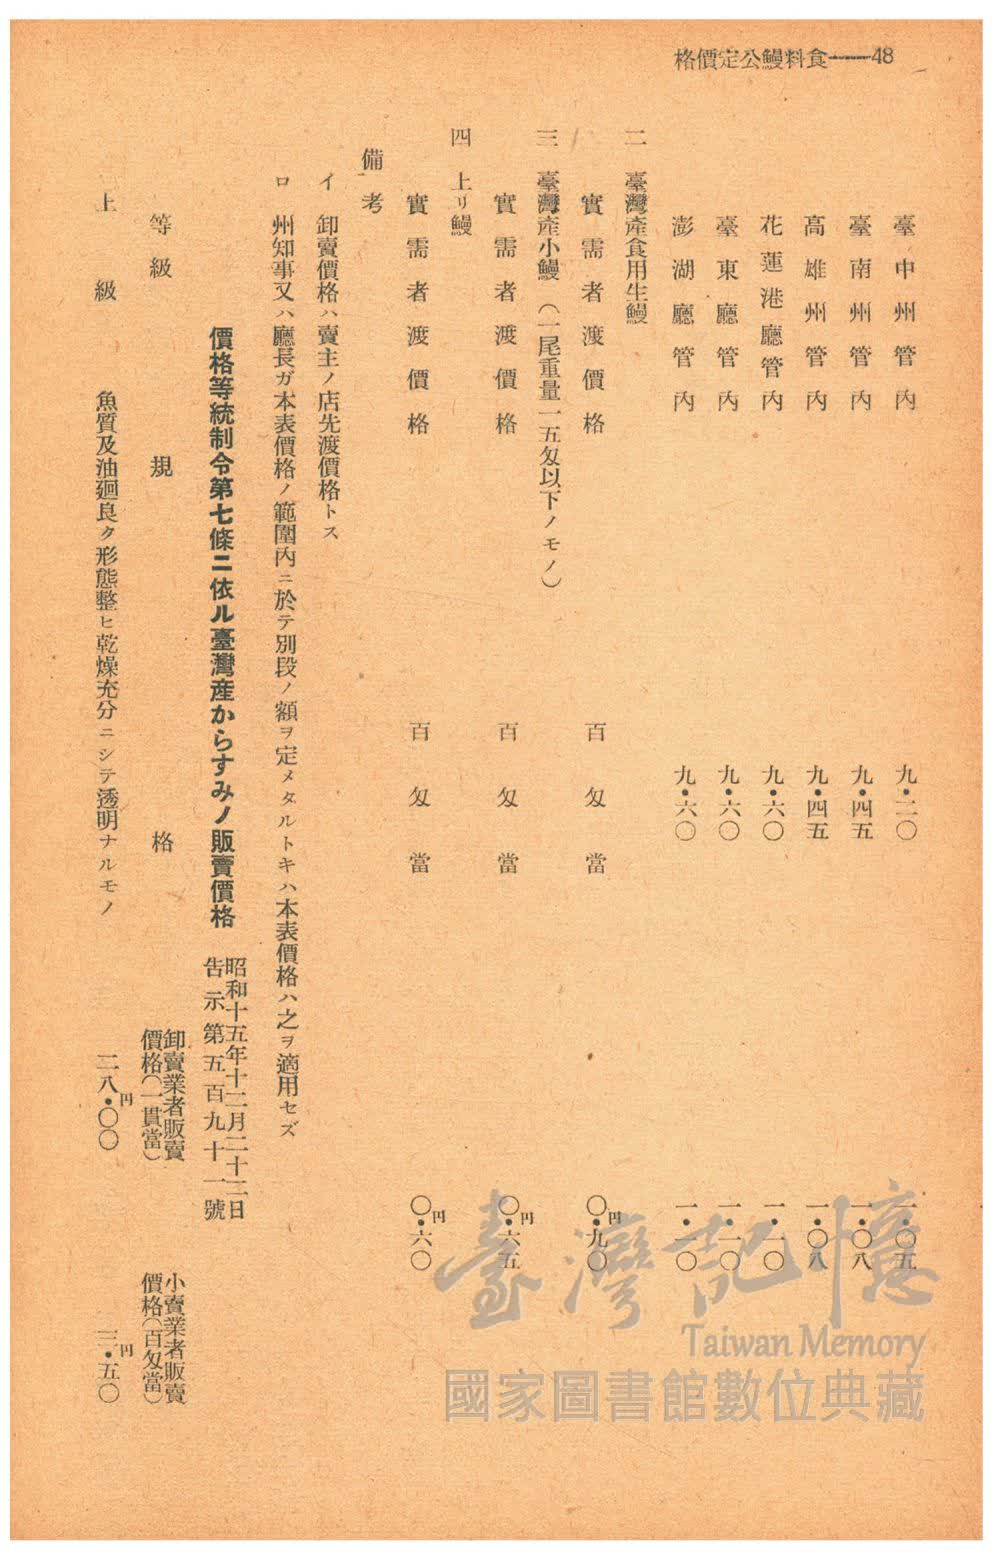 48——食料鰻公定價格
臺中州管內　九・二〇　一・〇五
臺南州管內　九・四五　一・〇八
高雄州管內　九・四五　一・〇八
花蓮港廳管內　九・六〇　一・一〇
臺東廳管內　九・六〇　一・一〇
澎湖廳管內　九・六〇　一・一〇
二　臺灣產食用生鰻
實需者渡價格　百匁當　〇・九〇円
三　臺灣產小鰻（一尾重量一五匁以下ノモノ）
實需者渡價格　百匁當　〇・六五円
四　上リ鰻
實需者渡價格　百匁當　〇・六〇円
備考
イ　卸賣價格ハ賣主ノ店先渡價格トス
ロ　州知事又ハ廳長ガ本表價格ノ範圍內ニ於テ別段ノ額ヲ定メタルトキハ本表價格ハ之ヲ適用セズ
價格等統制令第七條ニ依ル臺灣產からすみノ販賣價格　昭和十五年十二月二十三日
告示第五百九十一號
等級　規格　卸賣業者販賣價格（一貫當）　小賣業者販賣價格（百匁當）
上級　魚質及油廻良ク形態整ヒ乾燥充分ニシテ透明ナルモノ　二八・〇〇円　三・五〇円
臺灣記憶
Taiwan Memory
國家圖書館數位典藏